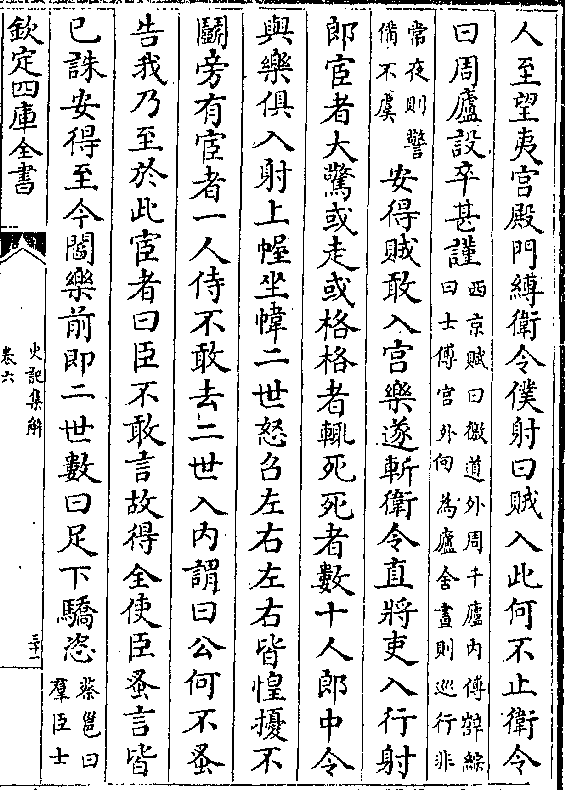 人至望夷宫殿門縛衛令僕射曰賊入此何不止衛令
曰周廬設卒甚謹西京賦曰徼道外周千廬内傅薛綜
曰士傅宫外向為廬舍晝則巡行非
常夜則警
備不虞安得賊敢入宫樂遂斬衛令直將吏入行射
郎宦者大驚或走或格格者輒死死者數十人郎中令
與樂俱入射上幄坐幃二世怒召左右左右皆惶擾不
鬭旁有宦者一人侍不敢去二世入内謂曰公何不蚤
告我乃至於此宦者曰臣不敢言故得全使臣蚤言皆
已誅安得至今閻樂前即二世數曰足下驕恣蔡邕曰
羣臣士
欽定四庫全書
史記集解
卷六
三十一